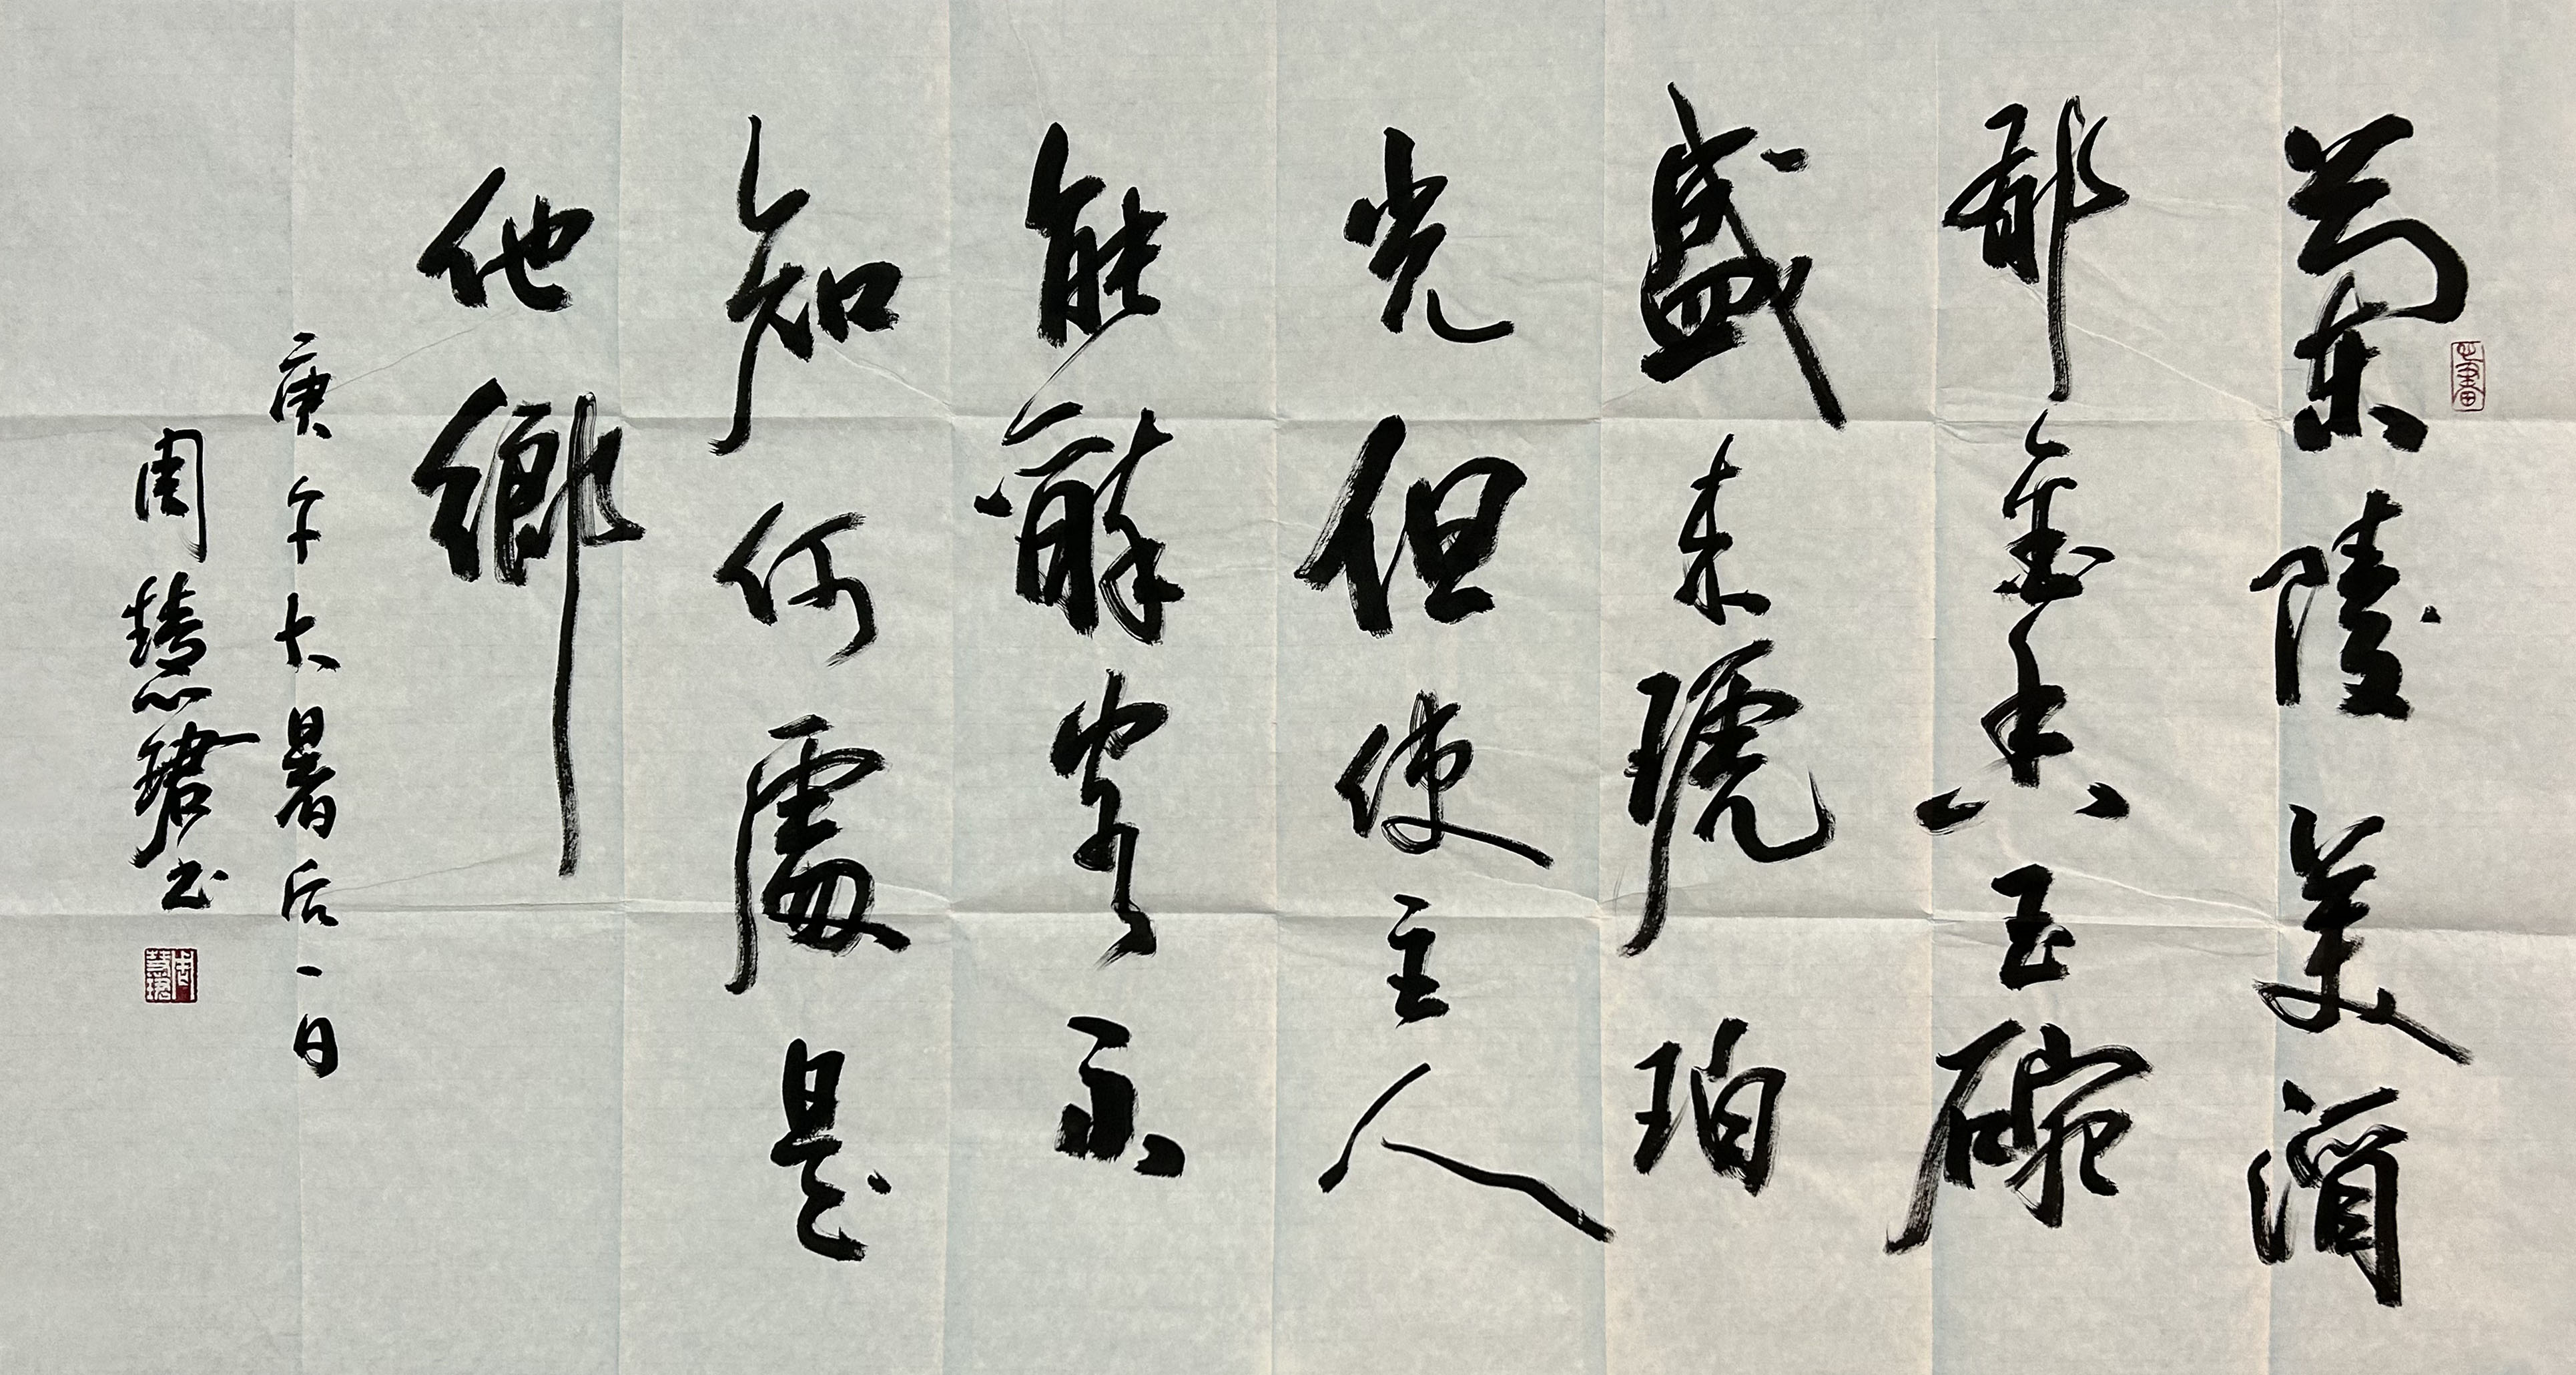 蘭陵美酒
郁金香玉碗
盛来琥珀
光但使主人
能醉客不
知何處是
他鄉
庚午大暑后一日
周慧珺书
周慧珺